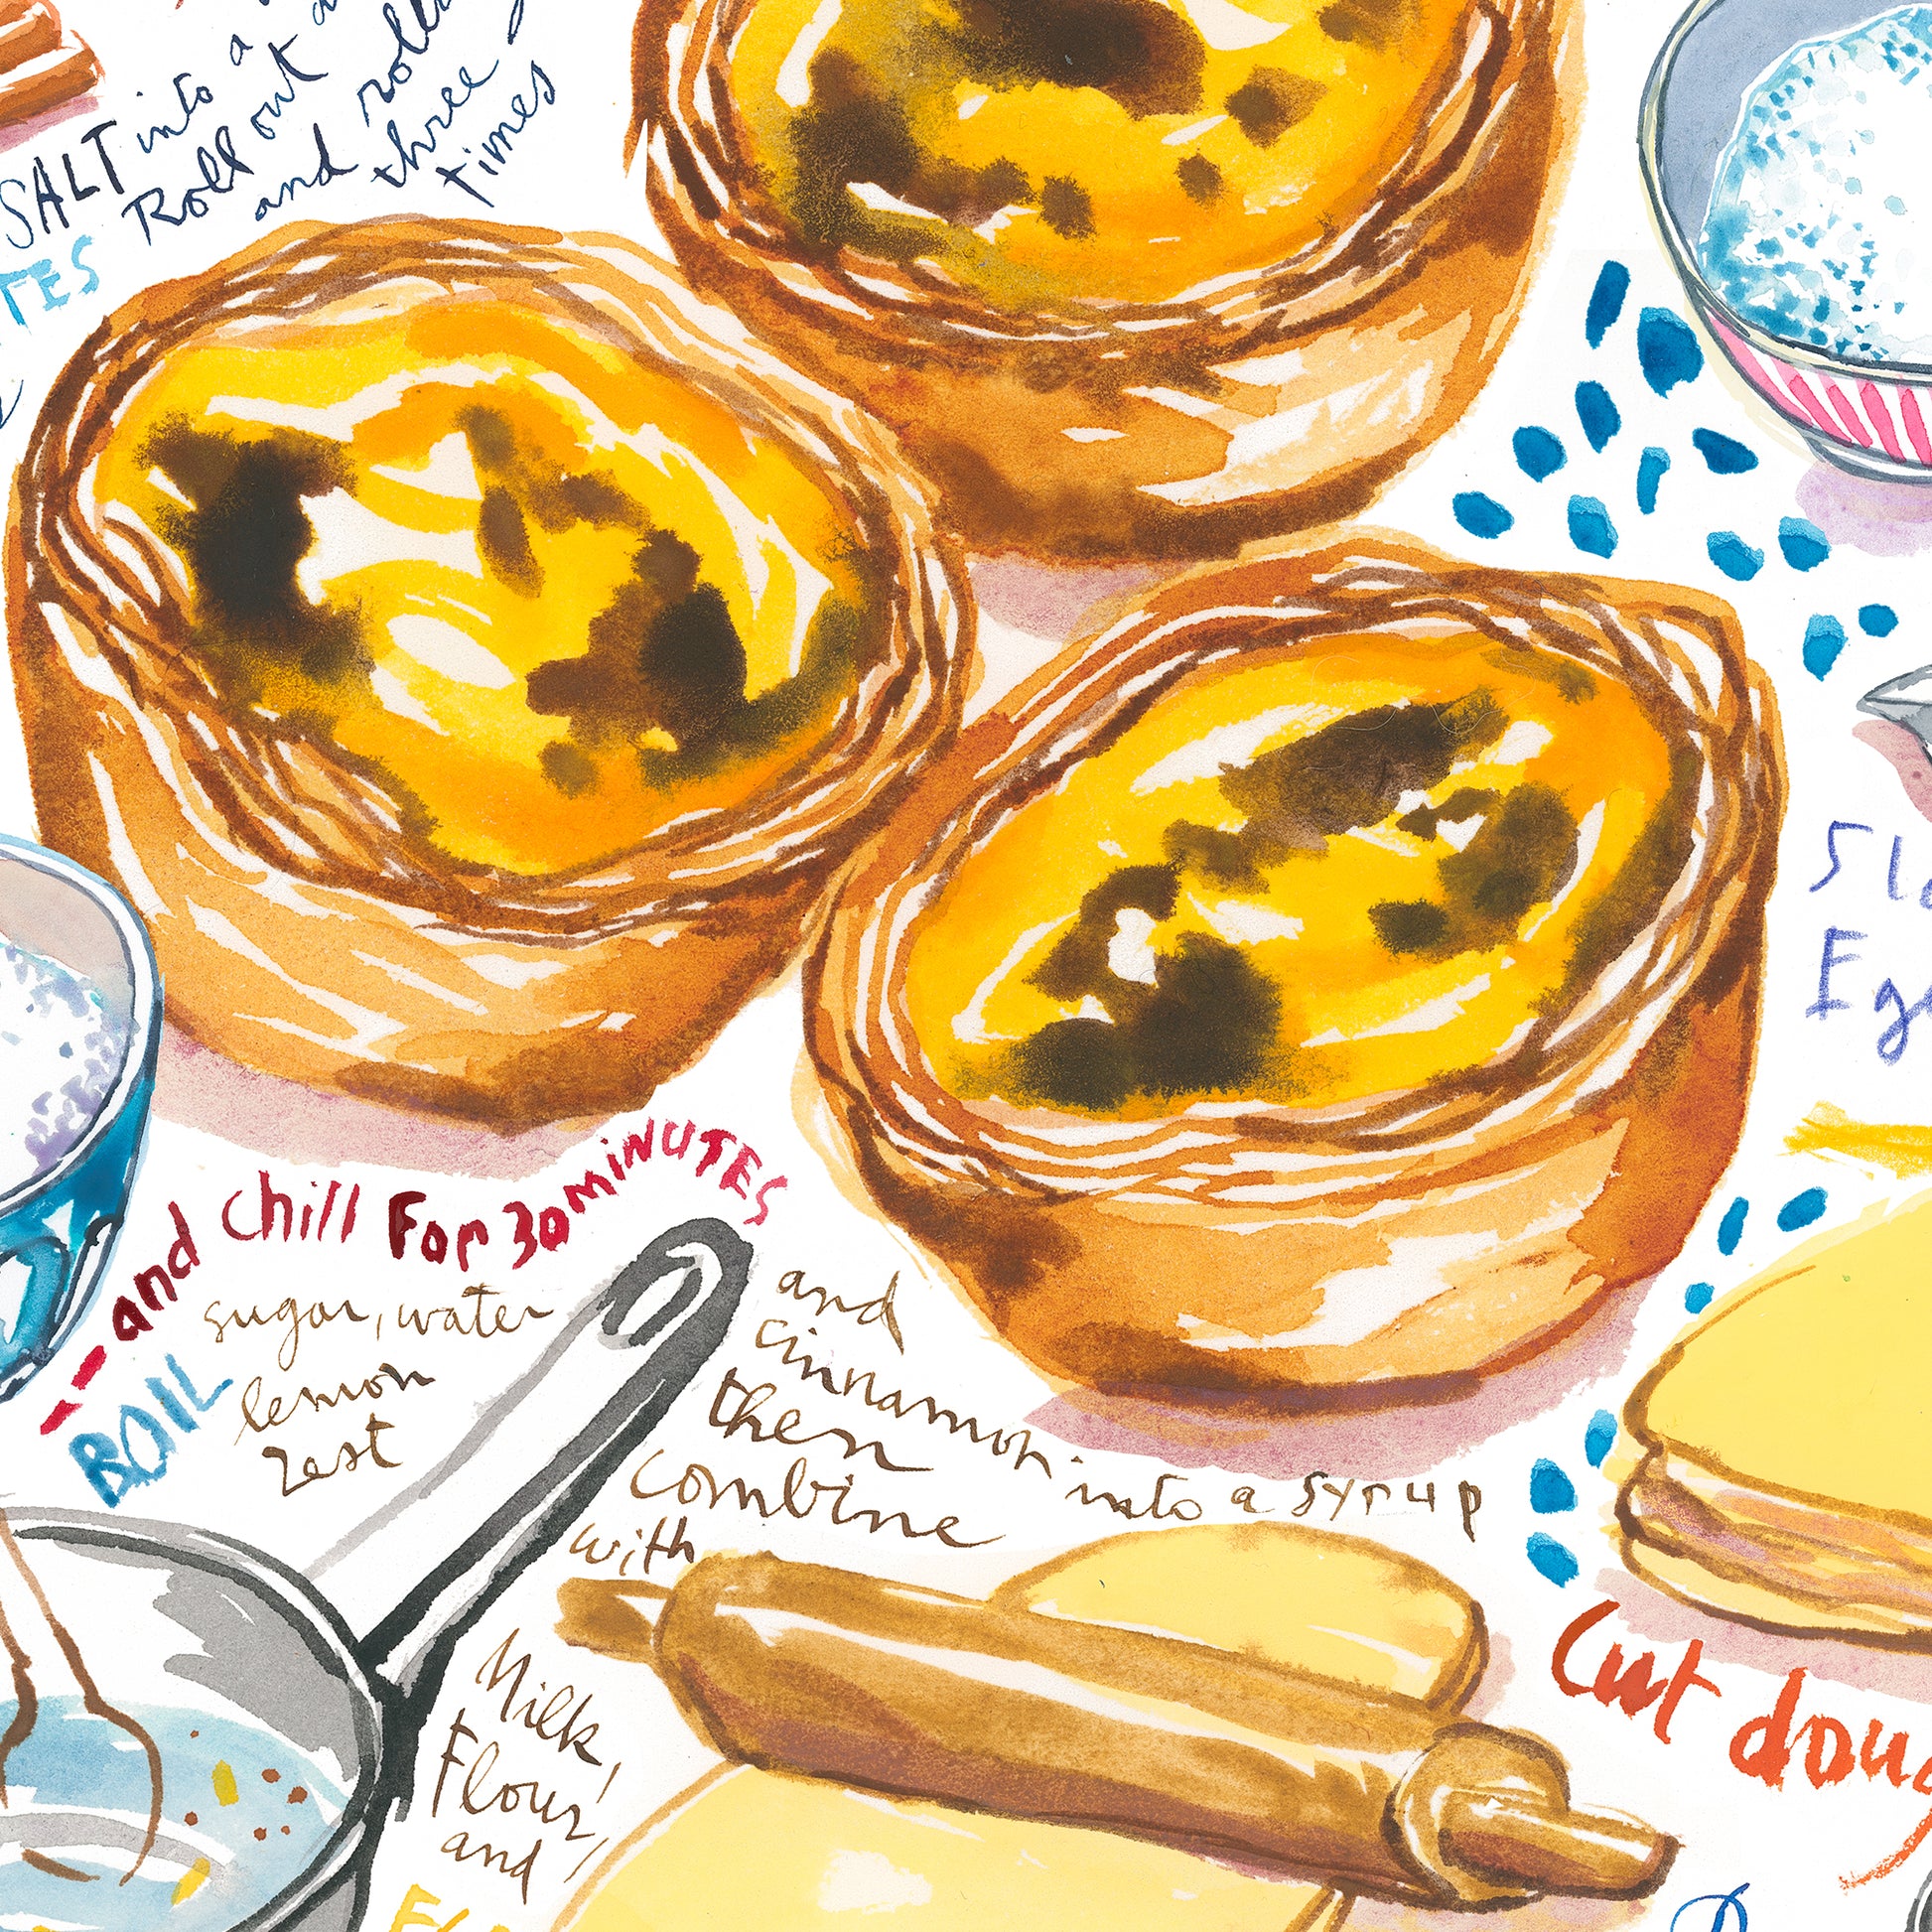 SALT into a
Roll out
and roll
three
times
TES
and chill For 30 minUTES
BOIL
sugar, water
lemon
zest
and
cinnamon into a syrup
then
combine
with
Milk,
Flour,
and
Cut